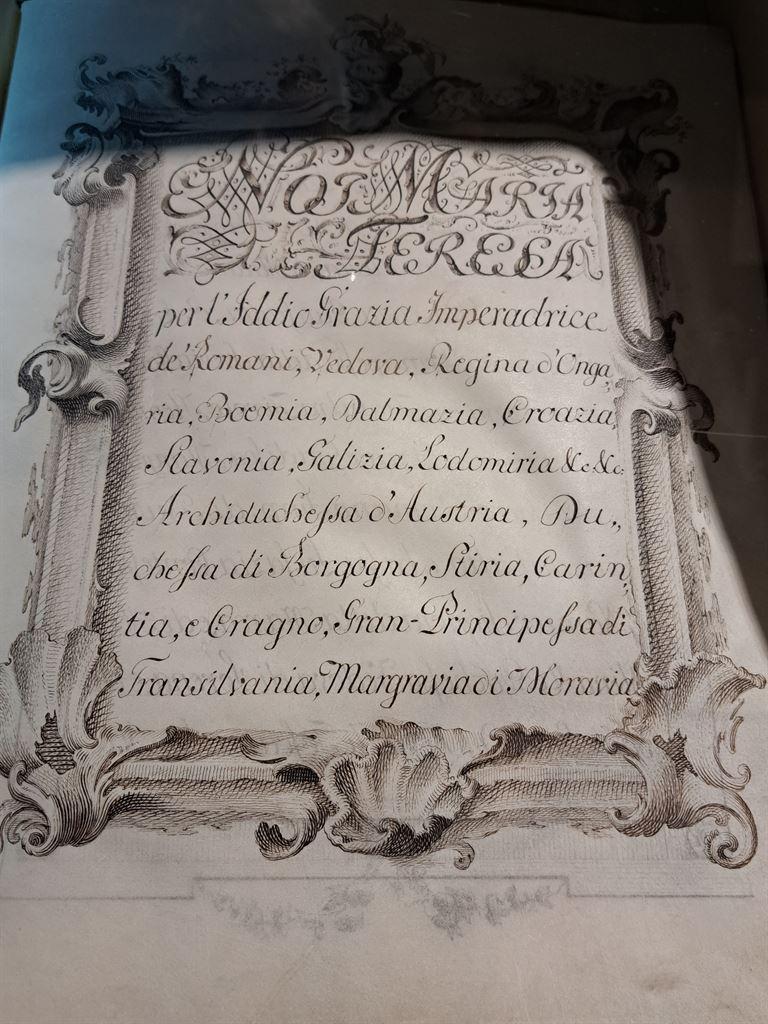 NOI MARIA
TERESA
per l'Iddio Grazia Imperadrice
de' Romani, Vedova, Regina d'Onga,,
ria, Boemia, Dalmazia, Croazia,
Slavonia, Galizia, Lodomiria &c. &c.
Archiduchessa d'Austria, Du,,
chessa di Borgogna, Stiria, Carin,,
tia, e Cragno, Gran-Principessa di
Transilvania, Margravia di Moravia